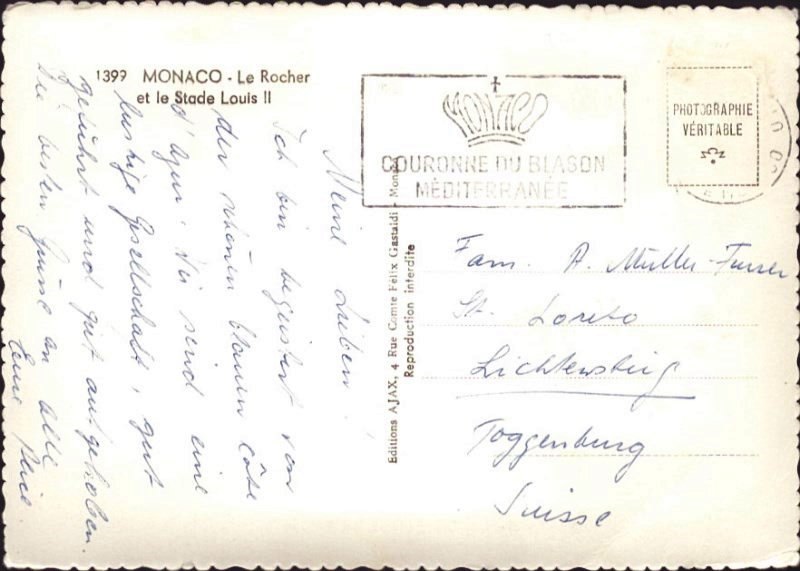 1399 MONACO - Le Rocher
et le Stade Louis II
Meine Lieben!
Ich bin begeistert von
der schönen blauen côte
d'Azur. Wir sind eine
lustige Gesellschaft, gut
geführt und gut aufgehoben.
Die besten Grüsse an alle
Eure
MONACO
COURONNE DU BLASON
MÉDITERRANÉE
PHOTOGRAPHIE
VÉRITABLE
Editions AJAX, 4 Rue Comte Félix Gastaldi - Monaco
Reproduction interdite
Fam. A. Müller-Furrer
St. Loreto
Lichtensteig
Toggenburg
Suisse